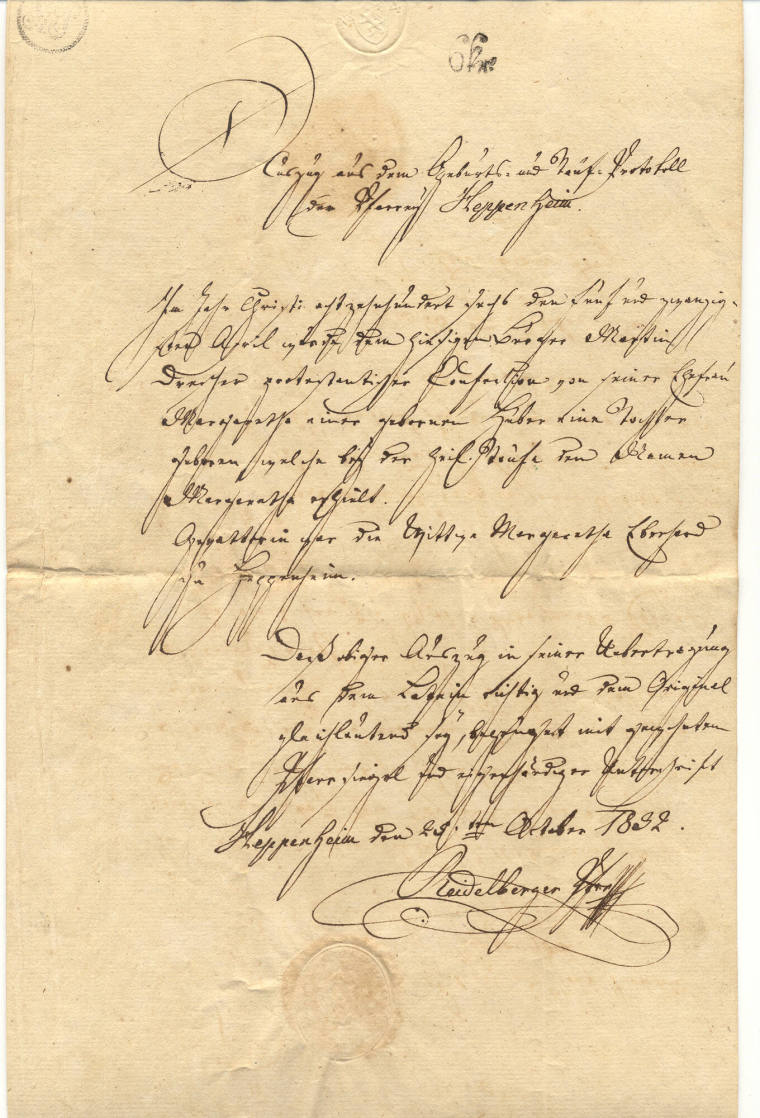 6 kr
Auszug aus dem Geburts- und Tauf-Protokoll
der Pfarrey Heppenheim.
Im Jahr Christi achtzehnhundert sechs den fünf und zwanzig-
sten April wurde dem hiesigen Bürger Martin
Drescher protestantischer Confession von seiner Ehefrau
Margaretha einer gebornen Huber eine Tochter
geboren welche bei der heil. Taufe den Namen
Margaretha erhielt.
Gevatterin war die Wittwe Margaretha Eberhard
zu Heppenheim.
Daß obiger Auszug in seiner Uebertragung
aus dem Latein richtig und dem Original
gleichlautend sey, bezeugt mit
Pfarrsiegel und eigenhändiger Unterschrift
Heppenheim den ten October 1832.
Reidelberger Pfarrer